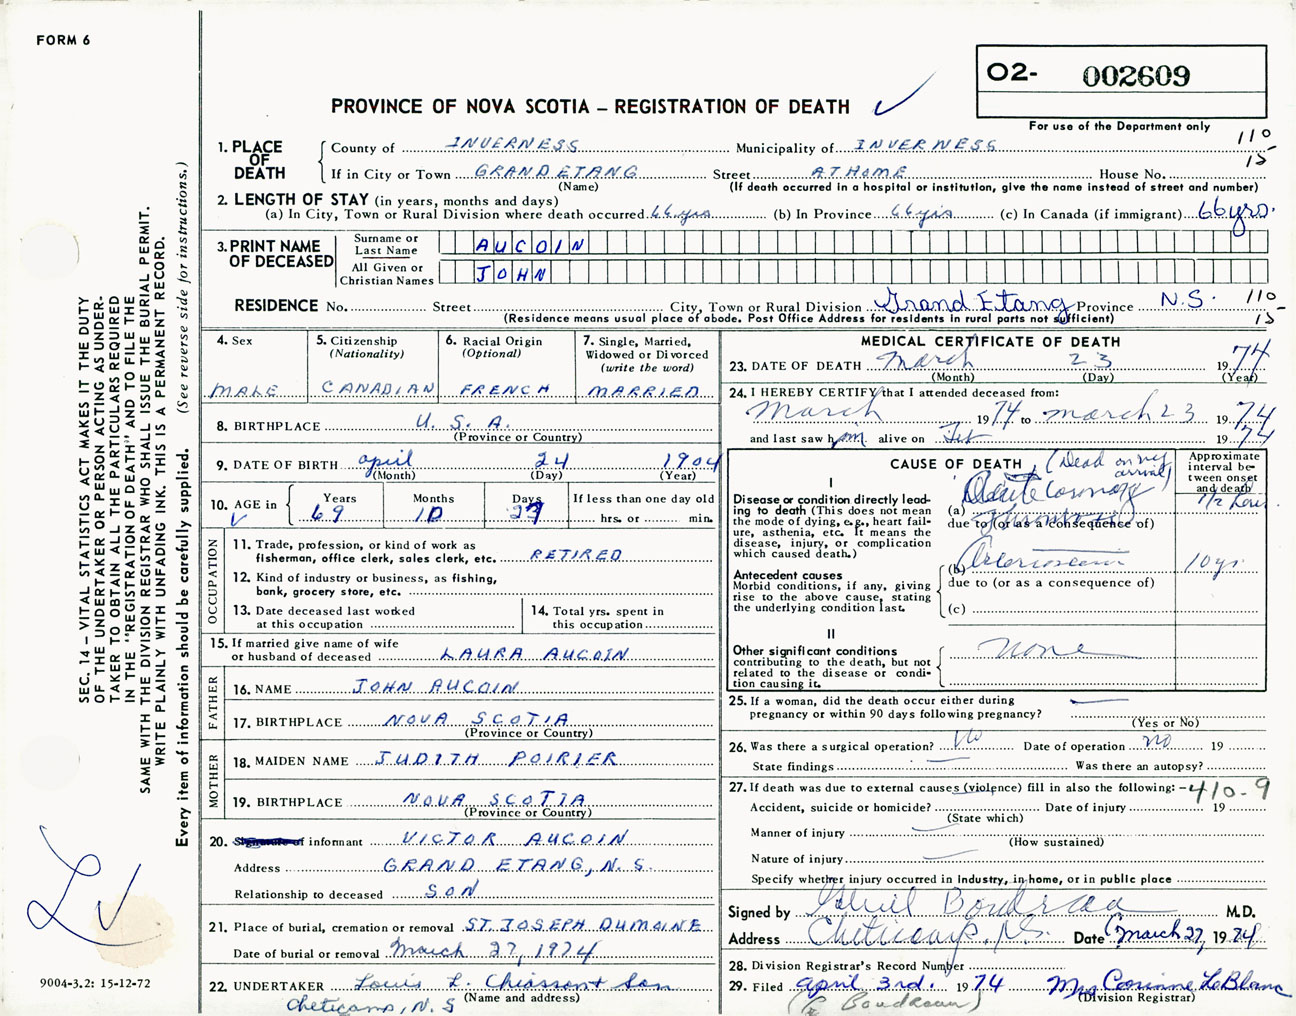 FORM 6
O2- 002609
PROVINCE OF NOVA SCOTIA – REGISTRATION OF DEATH
For use of the Department only
110
15
1. PLACE OF DEATH
County of INVERNESS Municipality of INVERNESS
If in City or Town GRAND ETANG Street AT HOME House No.
(Name) (If death occurred in a hospital or institution, give the name instead of street and number)
2. LENGTH OF STAY (in years, months and days)
(a) In City, Town or Rural Division where death occurred 66 yrs (b) In Province 66 yrs (c) In Canada (if immigrant) 66 yrs.
3. PRINT NAME OF DECEASED
Surname or Last Name AUCOIN
All Given or Christian Names JOHN
RESIDENCE No. Street City, Town or Rural Division Grand Etang Province N.S. 110
(Residence means usual place of abode. Post Office Address for residents in rural parts not sufficient) 15
4. Sex
MALE
5. Citizenship
(Nationality)
CANADIAN
6. Racial Origin
(Optional)
FRENCH
7. Single, Married,
Widowed or Divorced
(write the word)
MARRIED
8. BIRTHPLACE U. S. A.
(Province or Country)
9. DATE OF BIRTH April 24 1904
(Month) (Day) (Year)
10. AGE in Years Months Days If less than one day old
69 10 27 hrs. or min.
OCCUPATION
11. Trade, profession, or kind of work as
fisherman, office clerk, sales clerk, etc. RETIRED
12. Kind of industry or business, as fishing,
bank, grocery store, etc.
13. Date deceased last worked
at this occupation
14. Total yrs. spent in
this occupation
15. If married give name of wife
or husband of deceased LAURA AUCOIN
FATHER
16. NAME JOHN AUCOIN
17. BIRTHPLACE NOVA SCOTIA
(Province or Country)
MOTHER
18. MAIDEN NAME JUDITH POIRIER
19. BIRTHPLACE NOVA SCOTIA
(Province or Country)
20. informant VICTOR AUCOIN
Address GRAND ETANG, N.S.
Relationship to deceased SON
21. Place of burial, cremation or removal ST. JOSEPH DUMOINE
Date of burial or removal March 27, 1974
22. UNDERTAKER Louis L. Chiasson & Son
(Name and address)
Cheticamp, N.S
MEDICAL CERTIFICATE OF DEATH
23. DATE OF DEATH March 23 1974
(Month) (Day) (Year)
24. I HEREBY CERTIFY that I attended deceased from:
March 1974 to March 23 1974
and last saw him alive on Feb 1974
CAUSE OF DEATH (Dead on my arrival)
Approximate interval between onset and death
I
Disease or condition directly leading to death (This does not mean the mode of dying, e.g., heart failure, asthenia, etc. It means the disease, injury, or complication which caused death.)
(a) Acute Coronary Thrombosis 1/2 hour
due to (or as a consequence of)
Antecedent causes
Morbid conditions, if any, giving rise to the above cause, stating the underlying condition last.
(b) 10 yrs
due to (or as a consequence of)
(c)
II
Other significant conditions
contributing to the death, but not related to the disease or condition causing it.
None
25. If a woman, did the death occur either during
pregnancy or within 90 days following pregnancy?
(Yes or No)
26. Was there a surgical operation? No Date of operation no 19
State findings Was there an autopsy?
27. If death was due to external causes (violence) fill in also the following: -410-9
Accident, suicide or homicide? Date of injury 19
(State which)
Manner of injury
(How sustained)
Nature of injury
Specify whether injury occurred in Industry, in home, or in public place
Signed by Boudreau M.D.
Address Cheticamp, N.S. Date March 27, 1974
28. Division Registrar's Record Number
29. Filed April 3rd. 1974 Mrs Corinne LeBlanc
(Division Registrar)
Boudreau)
SEC. 14 – VITAL STATISTICS ACT MAKES IT THE DUTY
OF THE UNDERTAKER OR PERSON ACTING AS UNDER-
TAKER TO OBTAIN ALL THE PARTICULARS REQUIRED
IN THE "REGISTRATION OF DEATH" AND TO FILE THE
SAME WITH THE DIVISION REGISTRAR WHO SHALL ISSUE THE BURIAL PERMIT.
WRITE PLAINLY WITH UNFADING INK. THIS IS A PERMANENT RECORD.
Every item of information should be carefully supplied. (See reverse side for instructions.)
9004-3.2: 15-12-72